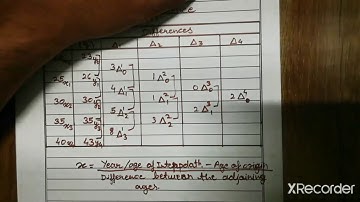 Differences
Δ₂ Δ₃ Δ₄
3Δ¹₀
25x₁ 26y₁ 1Δ²₀
4Δ¹₁ 0Δ³₀
30x₂ 30y₂ 1Δ²₁ 2Δ⁴₀
5Δ¹₂ 2Δ³₁
35x₃ 35y₃ 3Δ²₂
8Δ¹₃
40x₄ 43y₄
x = Year/age of Interpolatn - Age of origin
Difference between the adjoining
ages.
XRecorder